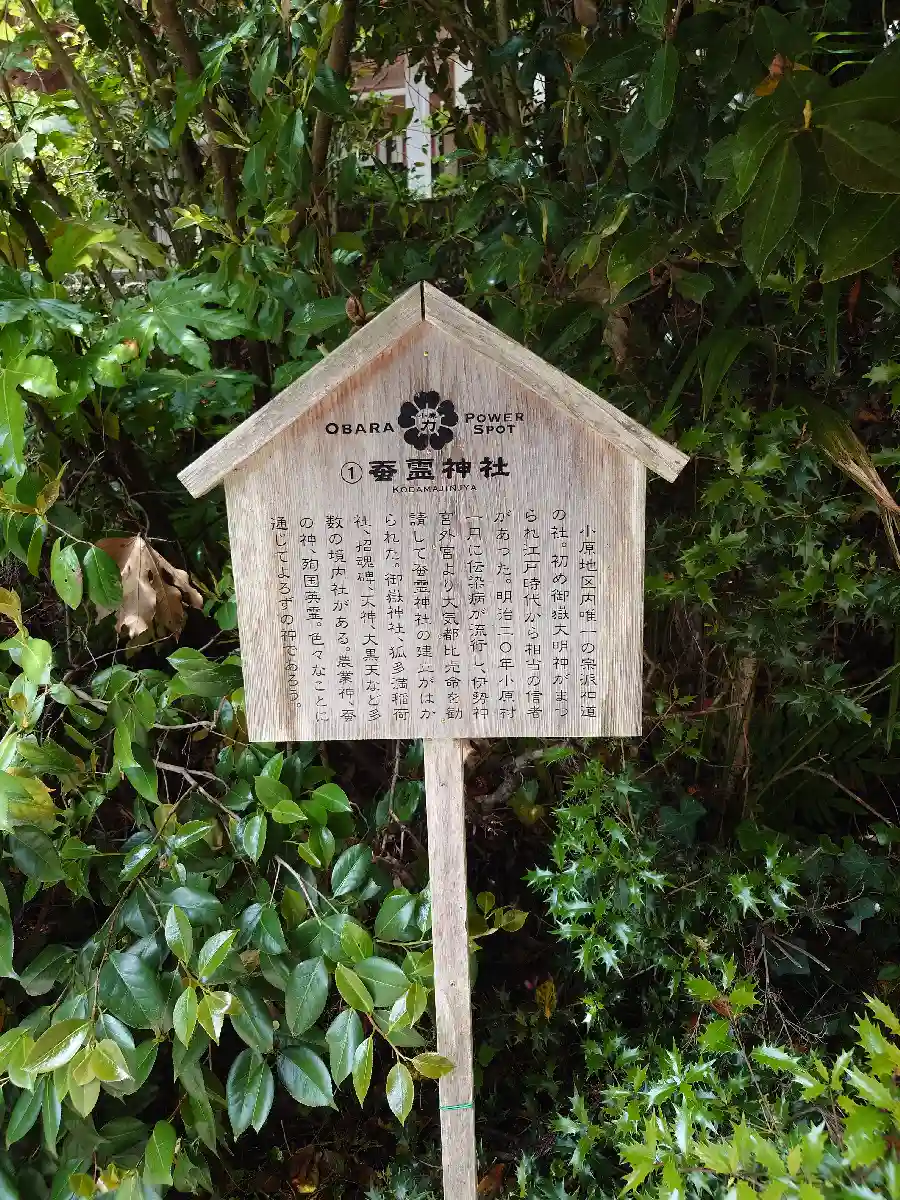 OBARA
小原
力
POWER
SPOT
①蚕霊神社
KODAMAJINJYA
小原地区内唯一の宗派神道
の社。初め御嶽大明神がまつ
られ江戸時代から相当の信者
があった。明治二〇年小原村
一円に伝染病が流行し、伊勢神
宮外宮より大気都比売命を勧
請して蚕霊神社の建立がはか
られた。御嶽神社、狐多満稲荷
社、招魂碑、天神、大黒天など多
数の境内社がある。農業神、蚕
の神、殉国英霊。色々なことに
通じてよろずの神であろう。